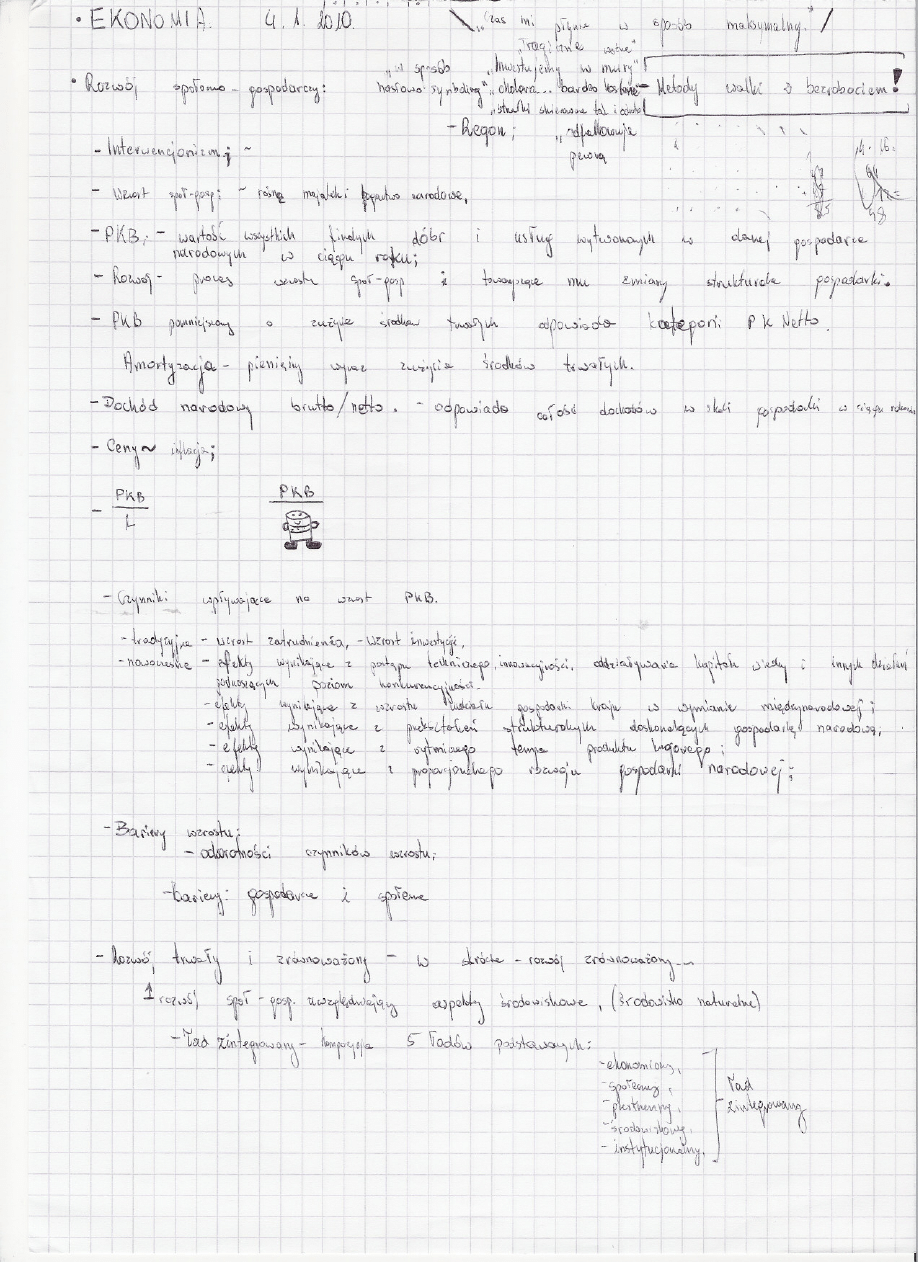 • EKONOMIA. 4.1.2010.
"Czas mi płynie w sposób maksymalny."
"Tragicznie wolne"
"w sposób "Inwestujemy w mury"
• Rozwój społeczno-gospodarczy: hasłowo symboliczny" "cholera... bardzo
- Metody walki z bezrobociem!
- Regon;
pewną
- Interwencjonizm; ~
- Wzrost społ-gosp; ~ rosną majątek i bogactwo narodowe,
- PKB; - wartość wszystkich finalnych dóbr i usług wytworzonych w danej gospodarce
narodowych w ciągu roku;
- Rozwój - proces wzrostu społ-gosp i towarzyszące mu zmiany strukturalne gospodarki.
- PKB pomniejszony o zużycie środków trwałych odpowiada kategorii PK Netto.
Amortyzacja - pieniężny wyraz zużycia środków trwałych.
- Dochód narodowy brutto/netto. - odpowiada całość dochodów w skali gospodarki w ciągu
- Ceny ~ inflacja;
- PKB PKB
L
- Czynniki wpływające na wzrost PKB.
- tradycyjne - wzrost zatrudnienia, - wzrost inwestycji,
- nowoczesne - efekty wynikające z postępu technicznego, innowacyjności, oddziaływania kapitału wiedzy i innych działań
podnoszących poziom konkurencyjności.
- efekty wynikające z wzrostu udziału gospodarki kraju w wymianie międzynarodowej;
- efekty wynikające z przekształceń strukturalnych doskonalących gospodarkę narodową;
- efekty wynikające z rytmicznego tempa produktu krajowego;
- efekty wynikające z proporcjonalnego rozwoju gospodarki narodowej;
- Bariery wzrostu;
- odwrotności czynników wzrostu;
- bariery: gospodarcze i społeczne
- Rozwój trwały i zrównoważony - w skrócie - rozwój zrównoważony
↑ rozwój społ-gosp. uwzględniający aspekty środowiskowe, (środowisko naturalne)
- Ład zintegrowany - kompozycja 5 ładów podstawowych:
- ekonomiczny,
- społeczny,
- przestrzenny,
- środowiskowy,
- instytucjonalny,
Ład
zintegrowany